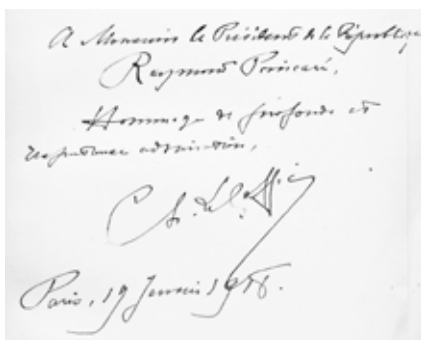 A Monsieur le Président de la République
Raymond Poincaré,
Hommage de profonde et
respectueuse admiration,
Ch. Le Goffic
Paris, 19 Janvier